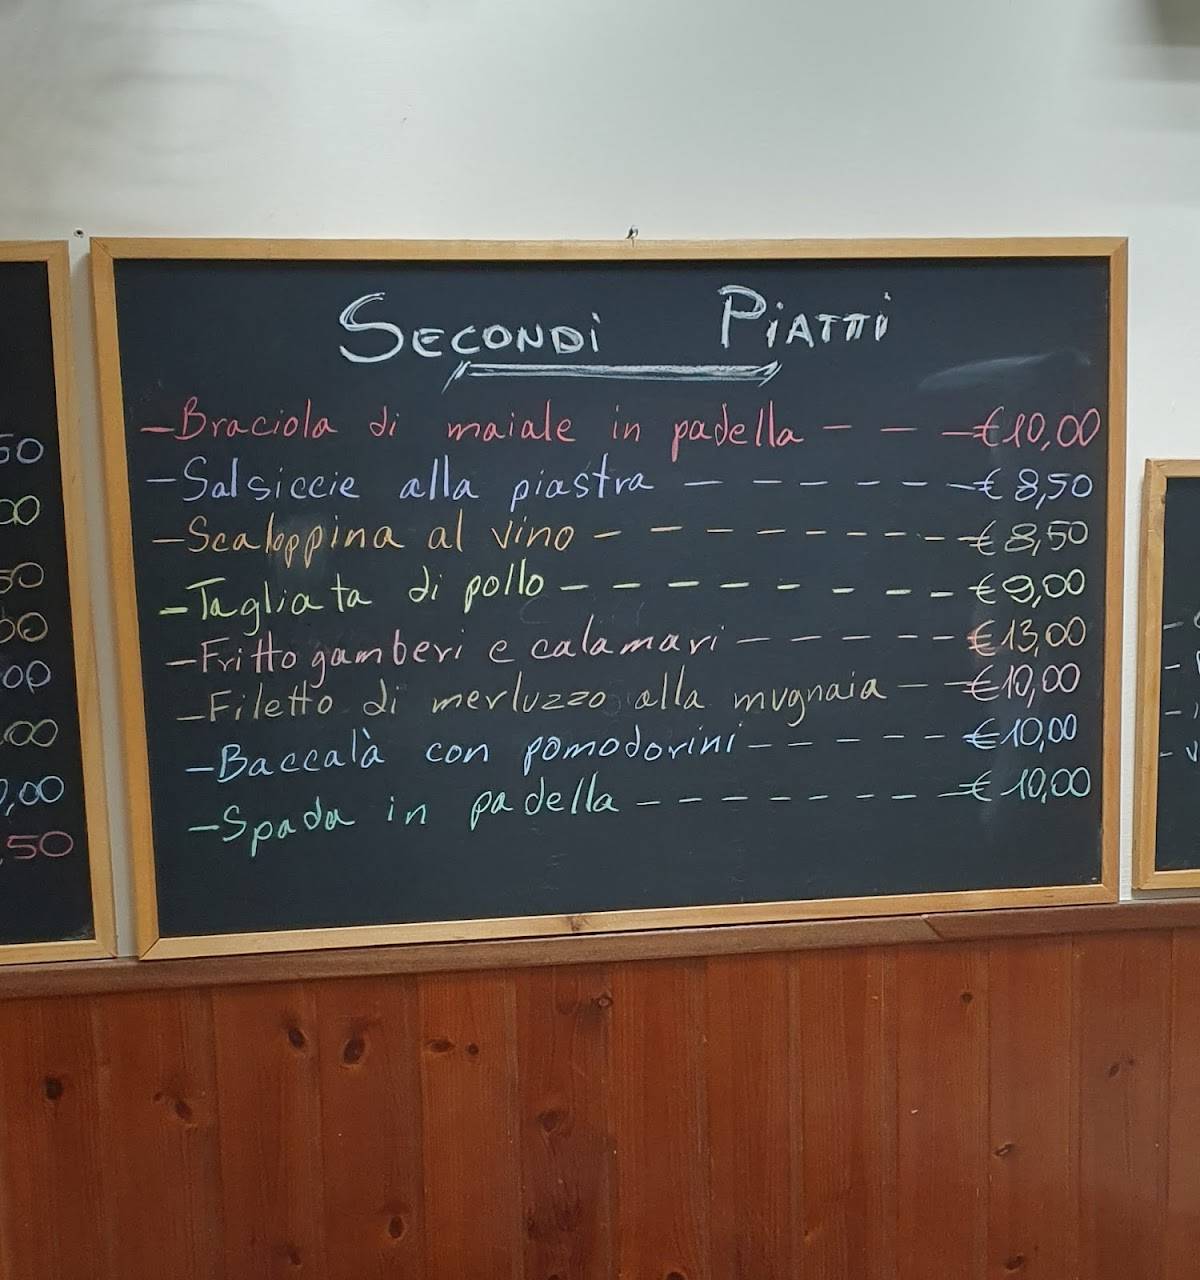 Secondi Piatti
- Braciola di maiale in padella - - - € 10,00
- Salsiccie alla piastra - - - - - - € 8,50
- Scaloppina al vino - - - - - - - - € 8,50
- Tagliata di pollo - - - - - - - - € 9,00
- Fritto gamberi e calamari - - - - - € 13,00
- Filetto di merluzzo alla mugnaia - - € 10,00
- Baccalà con pomodorini - - - - - € 10,00
- Spada in padella - - - - - - - € 10,00
50
00
50
00
00
,00
0,00
,50